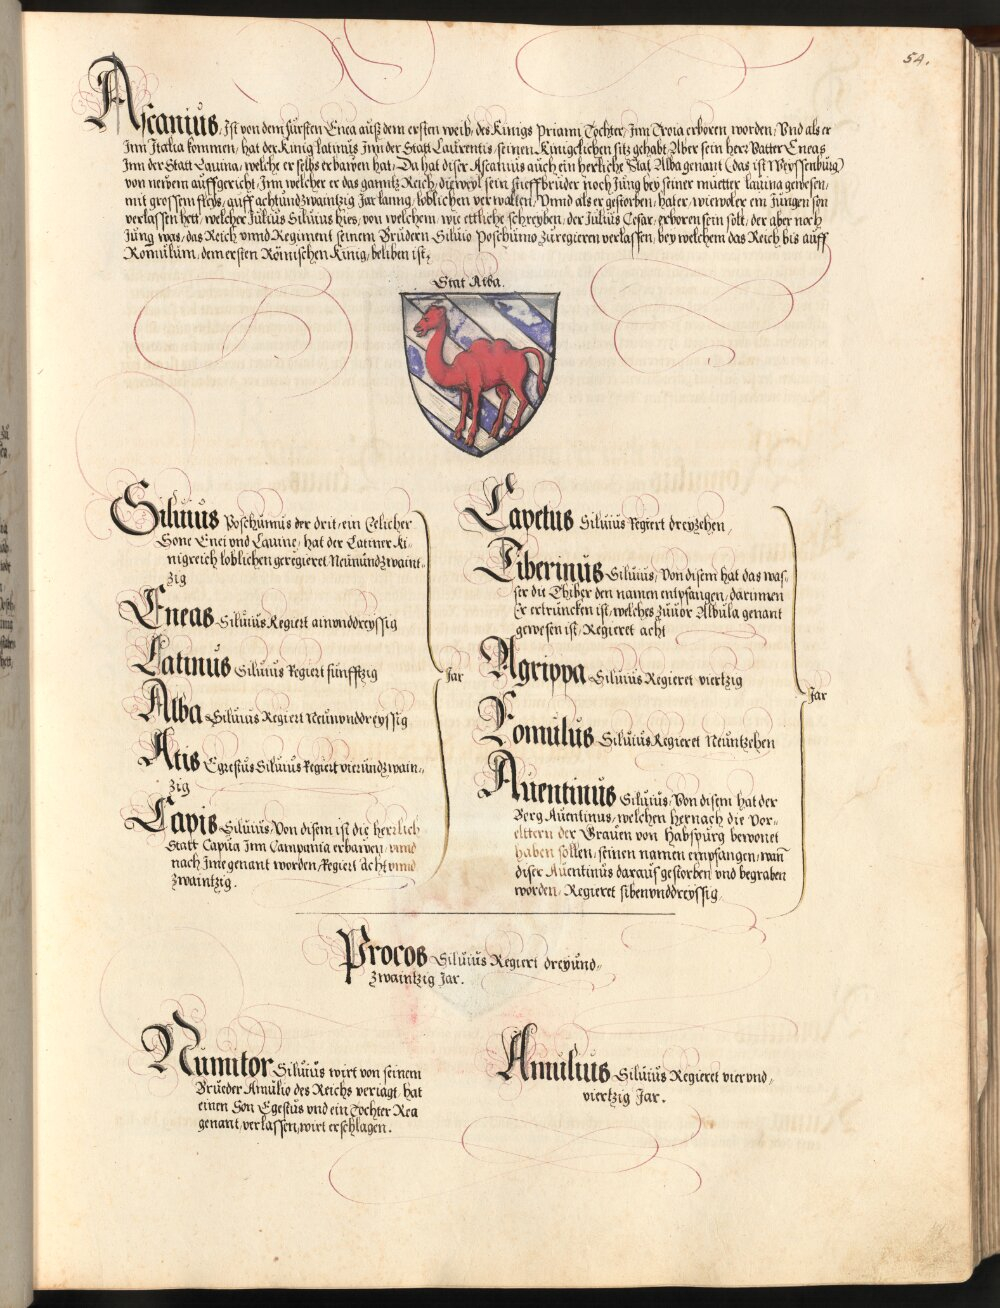 54.
Ascanius, Ist von dem fürsten Enea auß dem ersten weib, des Künigs Priami Tochter, Inn Troia erboren worden, Vnd als er
Inn Italia kommen, hat der Künig latinus Inn der Statt Laurentis, seinen Künigclichen sitz gehabt, Aber sein herr Vatter Eneas
Inn der Statt Lauina, welche er selbs erbawen hat, Da hat diser Ascanius auch ein herrliche Stat Alba genant (das ist Weyssenburg)
von newem auffgericht, Inn welcher er das ganntz Reich, dieweyl sein stieffbruder noch Jung bey seiner muetter lauina gewesen,
mit grossem fleys, auff achtundzwaintzig Jar lanng, loblichen verwalten, Vnnd als er gestorben, hat er, wiewoler ein Jungen son
verlassen hett, welcher Julius Siluius hies, von welchem, wie ettliche schreyben, der Julius Cesar, erboren sein solt, der aber noch
Jung was, das Reich vnnd Regiment seinem Brüdern Siluio Poschumo zuregieren verlassen, bey welchem das Reich bis auff
Romulum, dem ersten Römischen Künig, beliben ist,
Stat Alba.
Siluius Poschumus der drit, ein Eelicher
Sone Enei vnd Lauine, hat der Latiner Kü-
nigreich loblichen geregieret Neunundzwaint-
zig
Eneas Siluius Regiert ainvnddreyssig
Latinus Siluius Regiert funfftzig
Alba Siluius Regiert Neunvnddreyssig
Atis Egrestus Siluius Regiert vierundzwain-
zig
Capis Siluius, Von disem ist die herrlich
Statt Capua Inn Campania erbawen, vnnd
nach Ime genant worden, Regiert Acht vnnd
zwaintzig.
Jar
Capetus Siluius Regiert dreyzehen,
Tiberinus Siluius, Von disem hat das was-
ser die Thiber den namen entpfangen, darinnen
Er ertruncken ist, welches zuuor Albula genant
gewesen ist, Regieret acht
Agrippa Siluius Regieret viertzig
Romulus Siluius Regieret Neuntzehen
Auentinus Siluius, Von disem hat der
Berg Auentinus, welchen hernach die Vor-
elttern der Grauen von Habspurg bewonet
haben sollen, seinen namen empfangen, wan
diser Auentinus darauf gestorben vnd begraben
worden, Regieret sibenvnddreyssig
Jar
Procos Siluius Regiert dreyund-
zwaintzig Jar.
Numitor Siluius wirt von seinem
Brueder Amulio des Reichs veriagt, hat
einen Son Egestus vnd ein Tochter Rea
genant, verlassen, wirt erschlagen.
Amulius Siluius Regieret viervnd,
viertzig Jar.